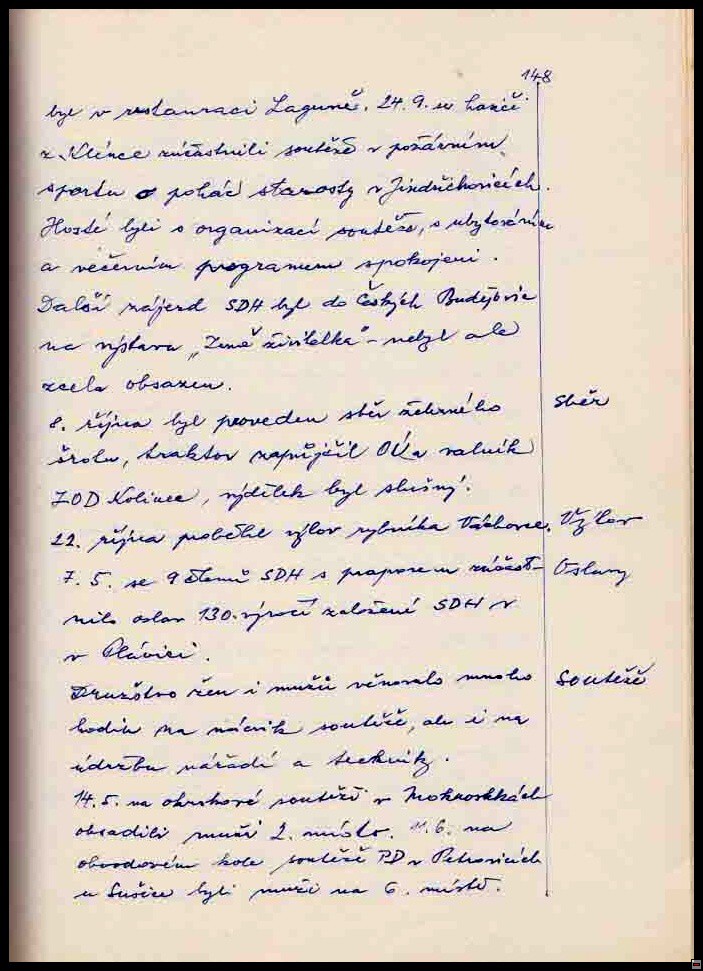 148
byl v restauraci Laguně. 24. 9. se hasiči
z Klince zúčastnili soutěže v požárním
sportu o pohár starosty v Jindřichovicích.
Hosté byli s organizací soutěže, s ubytováním
a večerním programem spokojeni.
Další zájezd SDH byl do Českých Budějovic
na výstavu „Země živitelka" – nebyl ale
zcela obsazen.
8. října byl proveden sběr železného Sběr
šrotu, traktor zapůjčil OÚ a valník
ZOD Kolinec, výdělek byl slušný.
22. října proběhl výlov rybníka Váchovce. Výlov
7. 5. se 9 členů SDH s praporem zúčast- Oslavy
nilo oslav 130. výročí založení SDH v
v Plánici.
Družstvo žen i mužů věnovalo mnoho Soutěže
hodin na nácvik soutěže, ale i na
údržbu nářadí a techniky.
14. 5. na okrskové soutěži v Mokrosukách
obsadili muži 2. místo. 11. 6. na
obvodovém kole soutěže PD v Petrovicích
u Sušice byli muži na 6. místě.